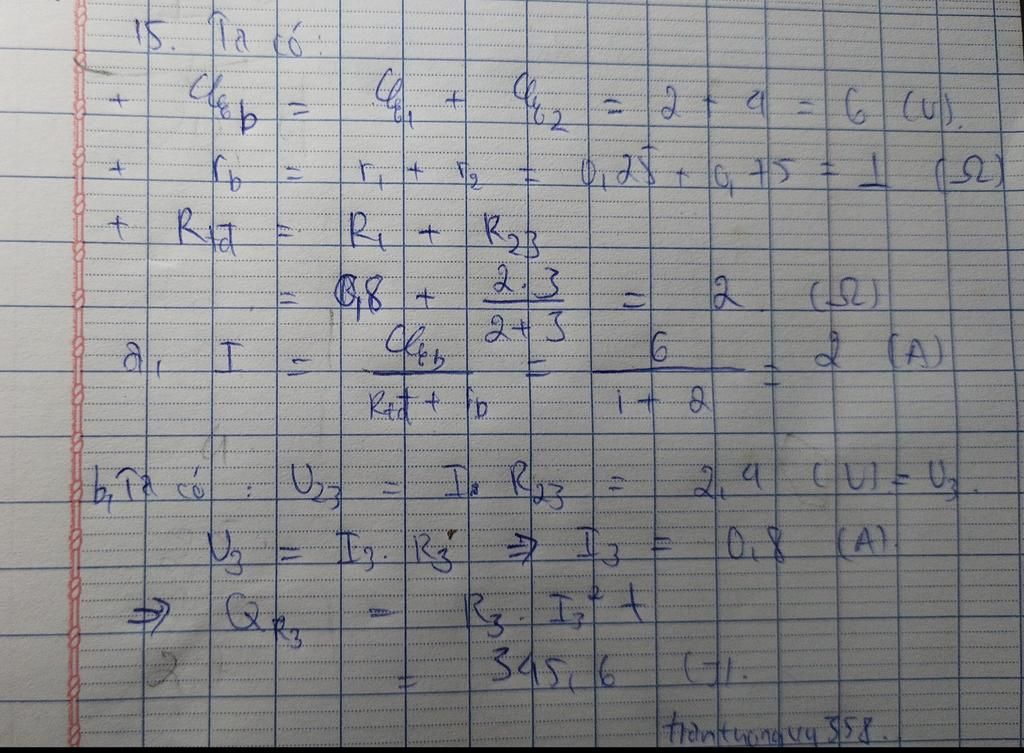 15. Ta có:
+ ξb = ξ1 + ξ2 = 2 + 4 = 6 (V).
+ rb = r1 + r2 = 0,25 + 0,75 = 1 (Ω)
+ Rtđ = R1 + R23
= 0,8 + \frac{2.3}{2+3} = 2 (Ω)
a, I = \frac{ξb}{Rtđ + rb} = \frac{6}{1+2} = 2 (A)
b, Ta có: U23 = I. R23 = 2,4 (V) = U3
U3 = I3. R3 ⇒ I3 = 0,8 (A).
⇒ QR3 = R3. I3² t
= 345,6 (J).
trantuongvy358.